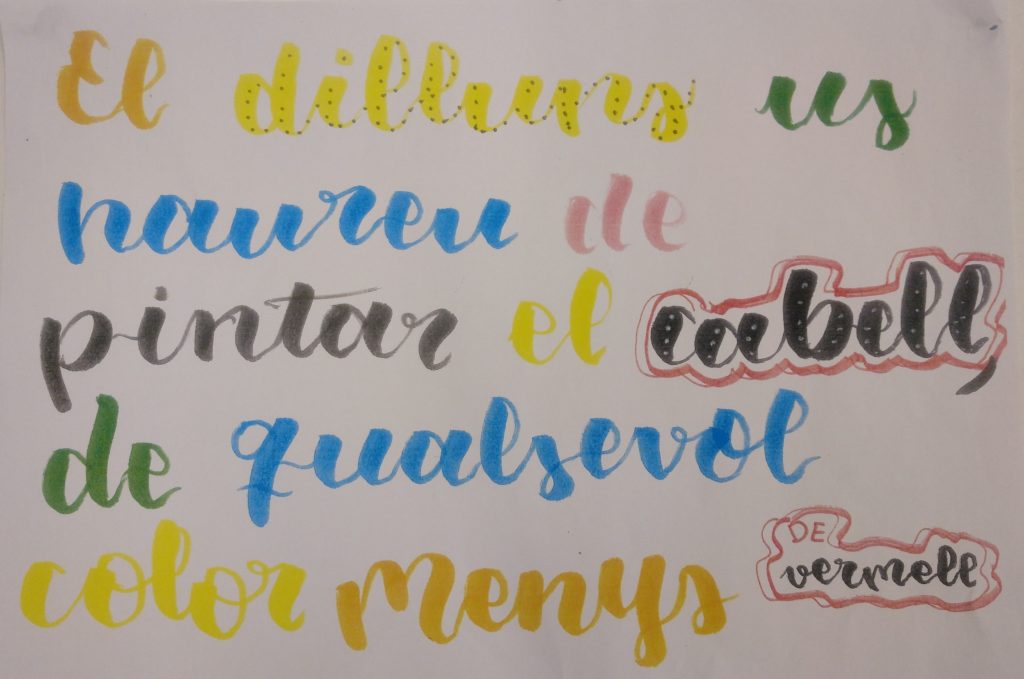 El dilluns us
haureu de
pintar el cabell,
de qualsevol
color menys DE vermell